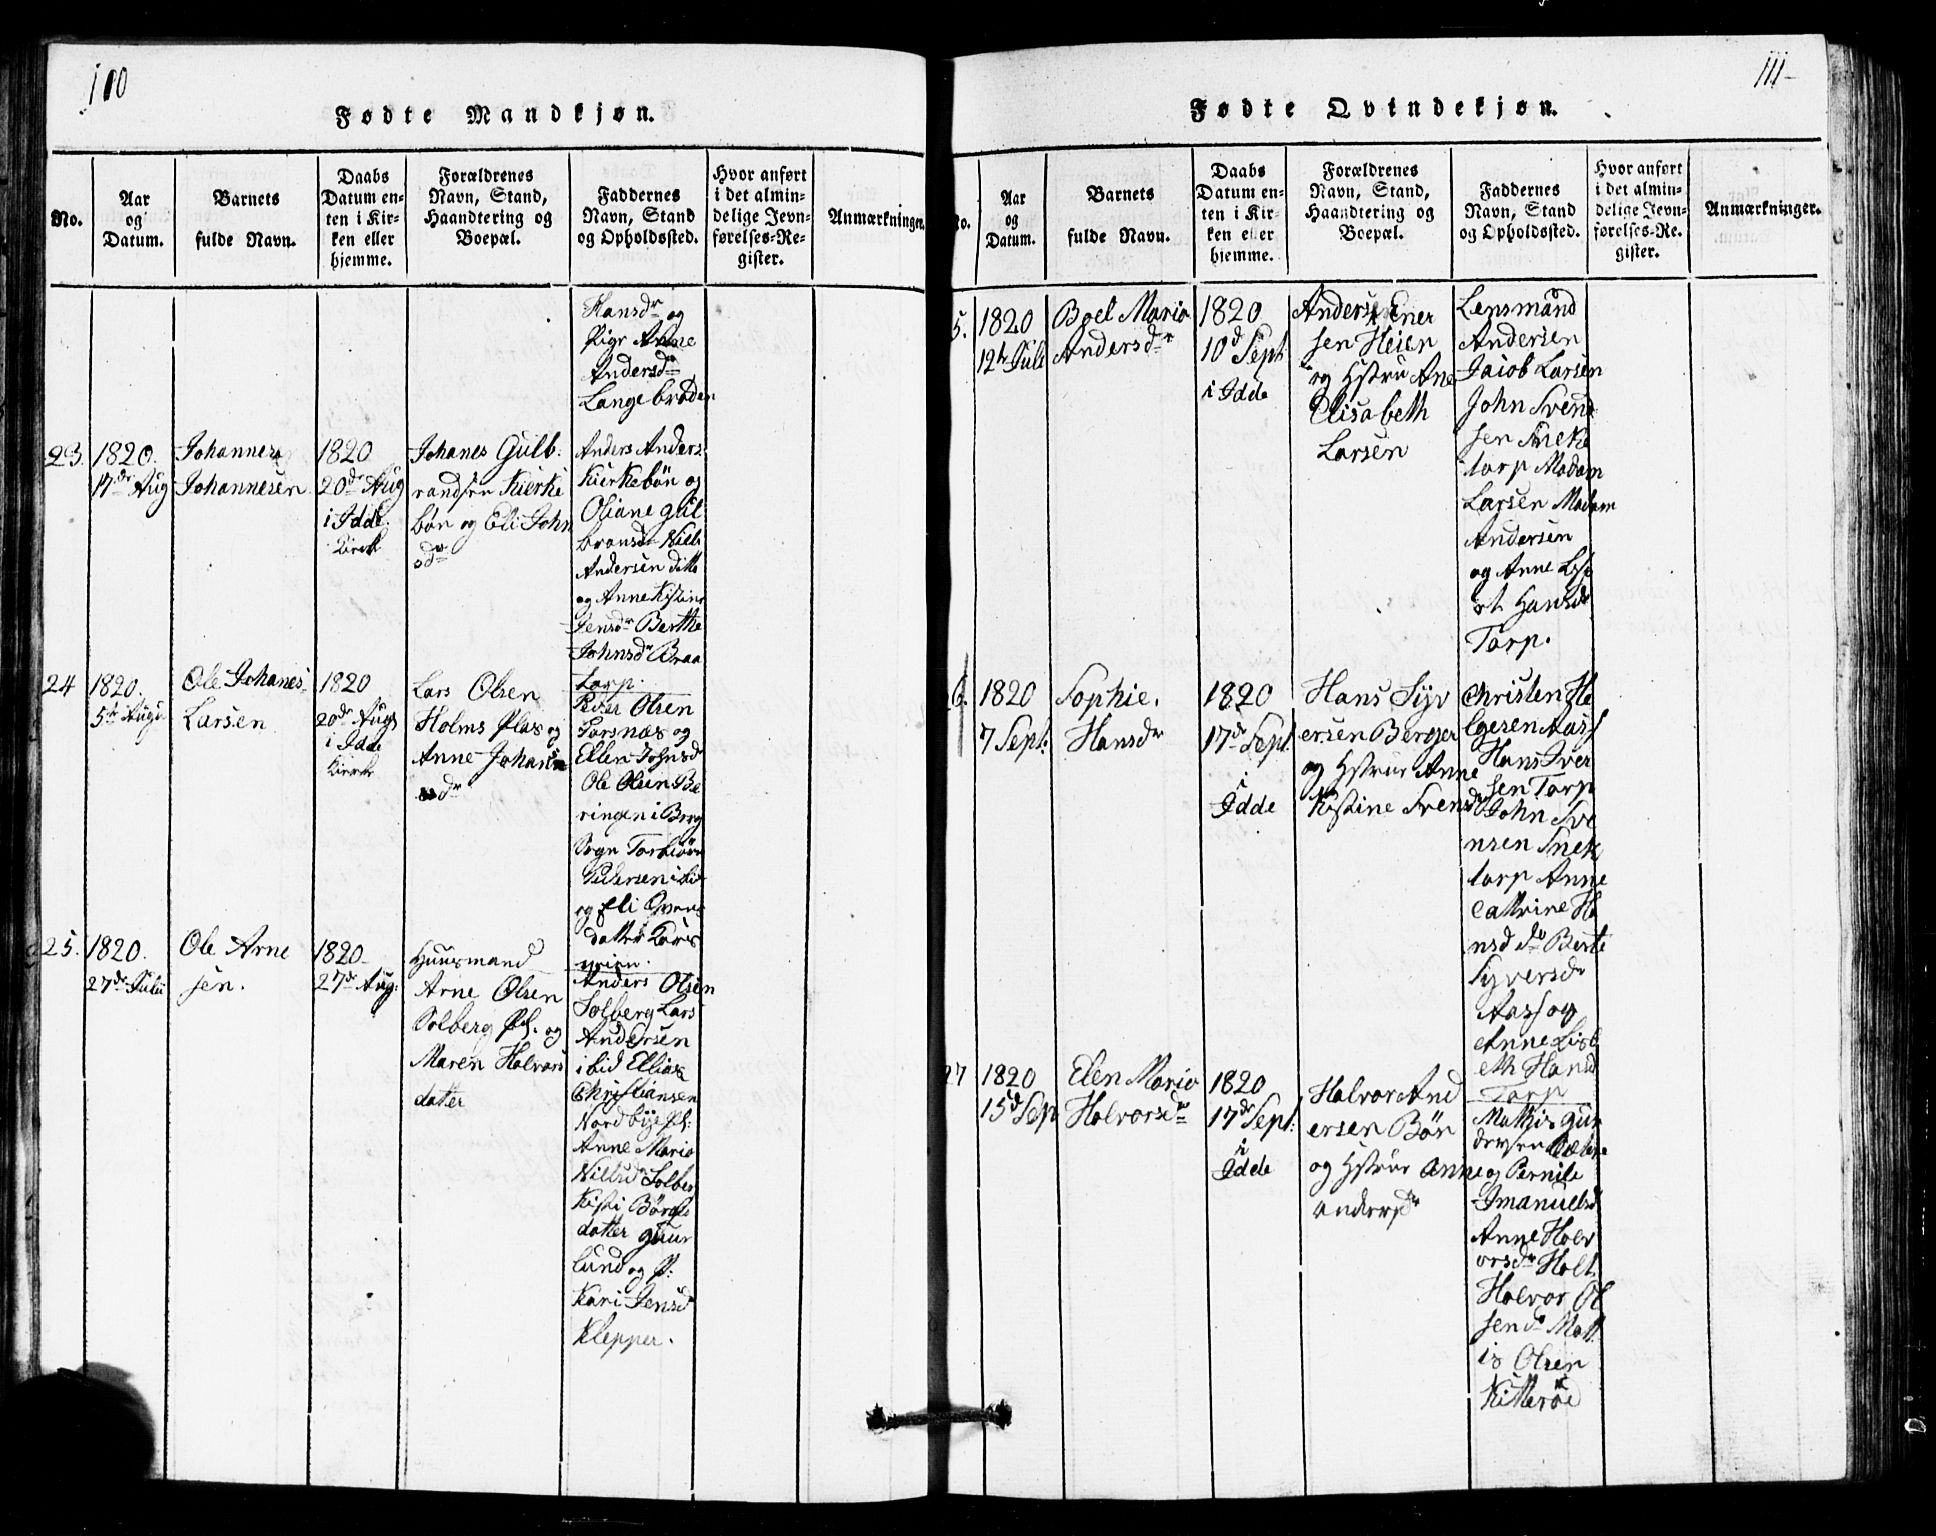 110
Fødte Mandkjøn.
No.
Aar
og
Datum.
Barnets
fulde Navn.
Daabs
Datum en-
ten i Kir-
ken eller
hjemme.
Forældrenes
Navn, Stand,
Haandtering og
Boepæl.
Faddernes
Navn, Stand
og Opholdssted.
Hvor anført
i det almin-
delige Jevn-
førelses-Re-
gister.
Anmærkninger.
Hansdr og
Pigr Anne
Andersdr
Langebroden
23.
1820.
17de Aug
Johannes
Johannesen
1820
20de Aug
i Idde
Kierk
Johanes Gulb-
randsen Kierke
bön og Eli John
sdr
Anders Anders
Kierkebön og
Oliane Gul
bransdr Niels
Andersen ditto
og Anne Kistine
Jensdr Berthe
Johnsdr Braa
torp.
24
1820.
5te Augu
Ole Johanes
Larsen
1820
20de Augs
i Idde
Kierke
Lars Olsen
Holms Plas og
Anne Johanne
sdr
Olsen
Torsnæs og
Ellen Johnsdr
Ole Olsen Be
ringen i Berg
Sogn Torbiörn
Pedersen ibid
og Eli Svens
datter
25.
1820.
27de Julii
Ole Arne
sen.
1820
27de Aug:
Huusmand
Arne Olsen
Solberg Pl. og
Maren Halvors
datter
Anders Olsen
Solberg Lars
Andersen
ibid Ellias
Christiansen
Nordbye Pl:
Anne Maria
Nilsd Solber
Kisti Börges
datter Guur
lund og P:
Kari Jensd
Klepper.
111-
Fødte Qvindekjøn.
No.
Aar
og
Datum.
Barnets
fulde Navn.
Daabs
Datum en-
ten i Kir-
ken eller
hjemme.
Forældrenes
Navn, Stand,
Haandtering og
Boepæl.
Faddernes
Navn, Stand
og Opholdssted.
Hvor anført
i det almin-
delige Jevn-
førelses-Re-
gister.
Anmærkninger.
5.
1820
12te Juli
Boel Maria
Andersdr
1820
10d Sept
i Idde
Anders Ener
sen Heien
og Hstru Ane
Elisabeth
Larsen
Lensmand
Andersen
Jaiob Larsen
John Svend
sen Sneke
torp Madam
Larsen Madam
Andersen
og Anne Lise
et Hansdr
Torp.
6.
1820
7 Sept:
Sophie.
Hansdr
1820
17de Sept.
i
Idde
Hans Syv
ersen Berger
og Hstrue Anne
Kistine Svensdr
Christen He
lgesen Aass
Hans Iver
sen Torp
John Sve
nsen Snek
torp Anne
Cattrine Ha
nsd do Berte
Syversdr
Aass og
Anne Lisb
eth Hansd
Torp
27
1820
15d Sep
Elen Maria
Halvorsdr
1820
17de Sept:
i
Idde
Halvor And
ersen Bön
og Hstrue Anne
Andersdr
Mathis Gun
dersen
og Pernile
Imanuelsd
Anne Halv
orsdr Holt
Halvor Ol
sen do Matt
is Olsen
Kitteröe